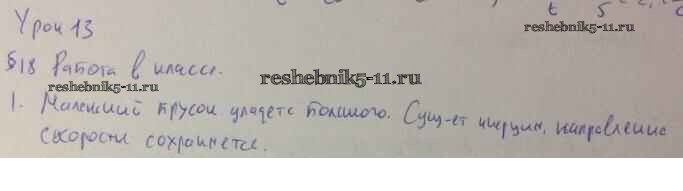 t 5
Урок 13
reshebnik5-11.ru
§18 Работа в классе.
reshebnik5-11.ru
reshebnik5-11.ru
1. Маленький брусок упадет с большого. Сущ-ет инерция, направление
скорости сохраняется.